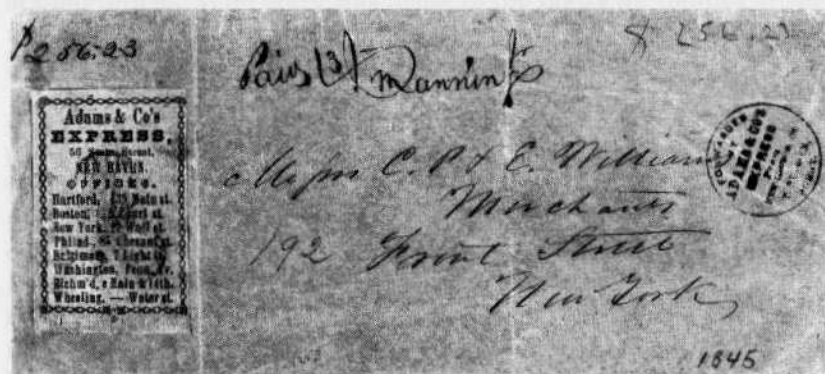 $256.23
$256.23
Paid
Manning
Adams & Co's
EXPRESS,
56 Street,
NEW HAVEN.
OFFICES.
Hartford, Main st.
Boston, Court st.
New York, Wall st.
Philad., Chesnut st.
Baltimore, 7 Light st.
Washington, Penn. Av.
Richm'd, c Main & 14th.
Wheeling, — Water st.
FORWARDED
BY
ADAMS & CO'S
EXPRESS
FROM
Messrs C. P & E. Williams
Merchants
192 Front Street
New York
1845